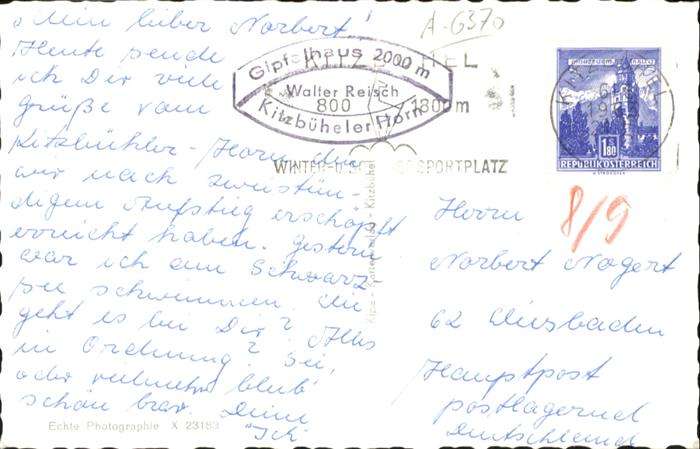 Mein lieber Norbert!
Heute sende
ich Dir viele
Grüße vom
Kitzbühler-Horn, das
wir nach zweistün-
digem Aufstieg erschöpft
erreicht haben. Gestern
war ich am Schwarz
see schwimmen. Wie
geht es bei Dir? Alles
in Ordnung? Sei,
oder vielmehr bleib
schön brav. Deine
"Ich
Echte Photographie X 23183
A-6370
Gipfelhaus 2000 m
Walter Reisch
Kitzbüheler Horn
800
1800 m
WINTER-U SPORTPLATZ
1.80
REPUBLIK ÖSTERREICH
8/9
Herrn
Norbert Nogert
62 Wiesbaden
Hauptpost
postlagernd
Deutschland